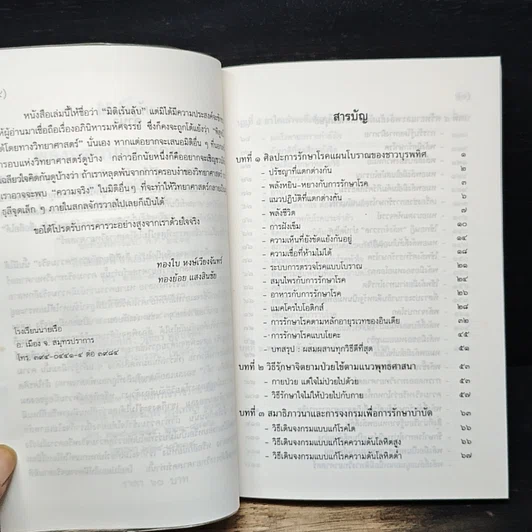 หนังสือเล่มนี้ให้ชื่อว่า "มิติเร้นลับ" แต่มิได้มีความประสงค์จะ
ให้ผู้อ่านมาเชื่อถือเรื่องอภินิหารมหัศจรรย์ ซึ่งก็คงจะถูกโต้แย้งว่า
ได้โดยทางวิทยาศาสตร์" นั่นเอง หากแต่อยากจะเสนอมิติอื่น ๆ ที่นอก
กรอบแห่งวิทยาศาสตร์ดูบ้าง กล่าวอีกนัยหนึ่งก็คืออยากจะเชิญ
เฉลียวใจคิดกันดูบ้างว่า ถ้าเราหลุดพ้นจากการครอบงำของวิทยาศาสตร์
เราอาจจะพบ "ความจริง" ในมิติอื่น ๆ ที่จะทำให้วิทยาศาสตร์กลาย
ธุลีจุดเล็ก ๆ ภายในสกลจักรวาลไปเลยก็เป็นได้
ขอได้โปรดรับการคารวะอย่างสูงจากเราด้วยใจจริง
ทองใบ หงษ์เวียงจันทร์
ทองย้อย แสงสินชัย
โรงเรียนนายเรือ
อ. เมือง จ. สมุทรปราการ
โทร. ๓๙๔-๐๔๔๑-๔ ต่อ ๓๘๘๔
สารบัญ
บทที่ ๑ ศิลปะการรักษาโรคแผนโบราณของชาวบูรพทิศ ๑
- ปรัชญาที่แตกต่างกัน ๑
- พลังหยิน-หยางกับการรักษาโรค ๓
- แนวปฏิบัติที่แตกต่างกัน ๕
- พลังชีวิต ๗
- การฝังเข็ม ๑๐
- ความเห็นที่ยังขัดแย้งกันอยู่ ๑๔
- ความเชื่อที่ห้ามไม่ได้ ๑๘
- ระบบการตรวจโรคแบบโบราณ ๒๑
- สมุนไพรกับการรักษาโรค ๒๔
- อาหารกับการรักษาโรค ๒๖
- แมคโครไบโอติกส์ ๒๘
- การรักษาโรคตามหลักอายุรเวทของอินเดีย ๓๒
- การรักษาโรคแบบโยคะ ๔๕
- บทสรุป : ผสมผสานทุกวิธีดีที่สุด ๕๑
บทที่ ๒ วิธีรักษาจิตยามป่วยไข้ตามแนวพุทธศาสนา ๕๓
- กายป่วย แต่ใจไม่ป่วยไปด้วย ๕๓
- วิธีรักษาใจไม่ให้ป่วยไปกับกาย ๕๗
บทที่ ๓ สมาธิภาวนาและการจงกรมเพื่อการรักษาบำบัด ๖๓
- วิธีเดินจงกรมแบบแก้โรคไต ๖๕
- วิธีเดินจงกรมแบบแก้โรคความดันโลหิตสูง ๖๖
- วิธีเดินจงกรมแบบแก้โรคความดันโลหิตต่ำ ๖๗